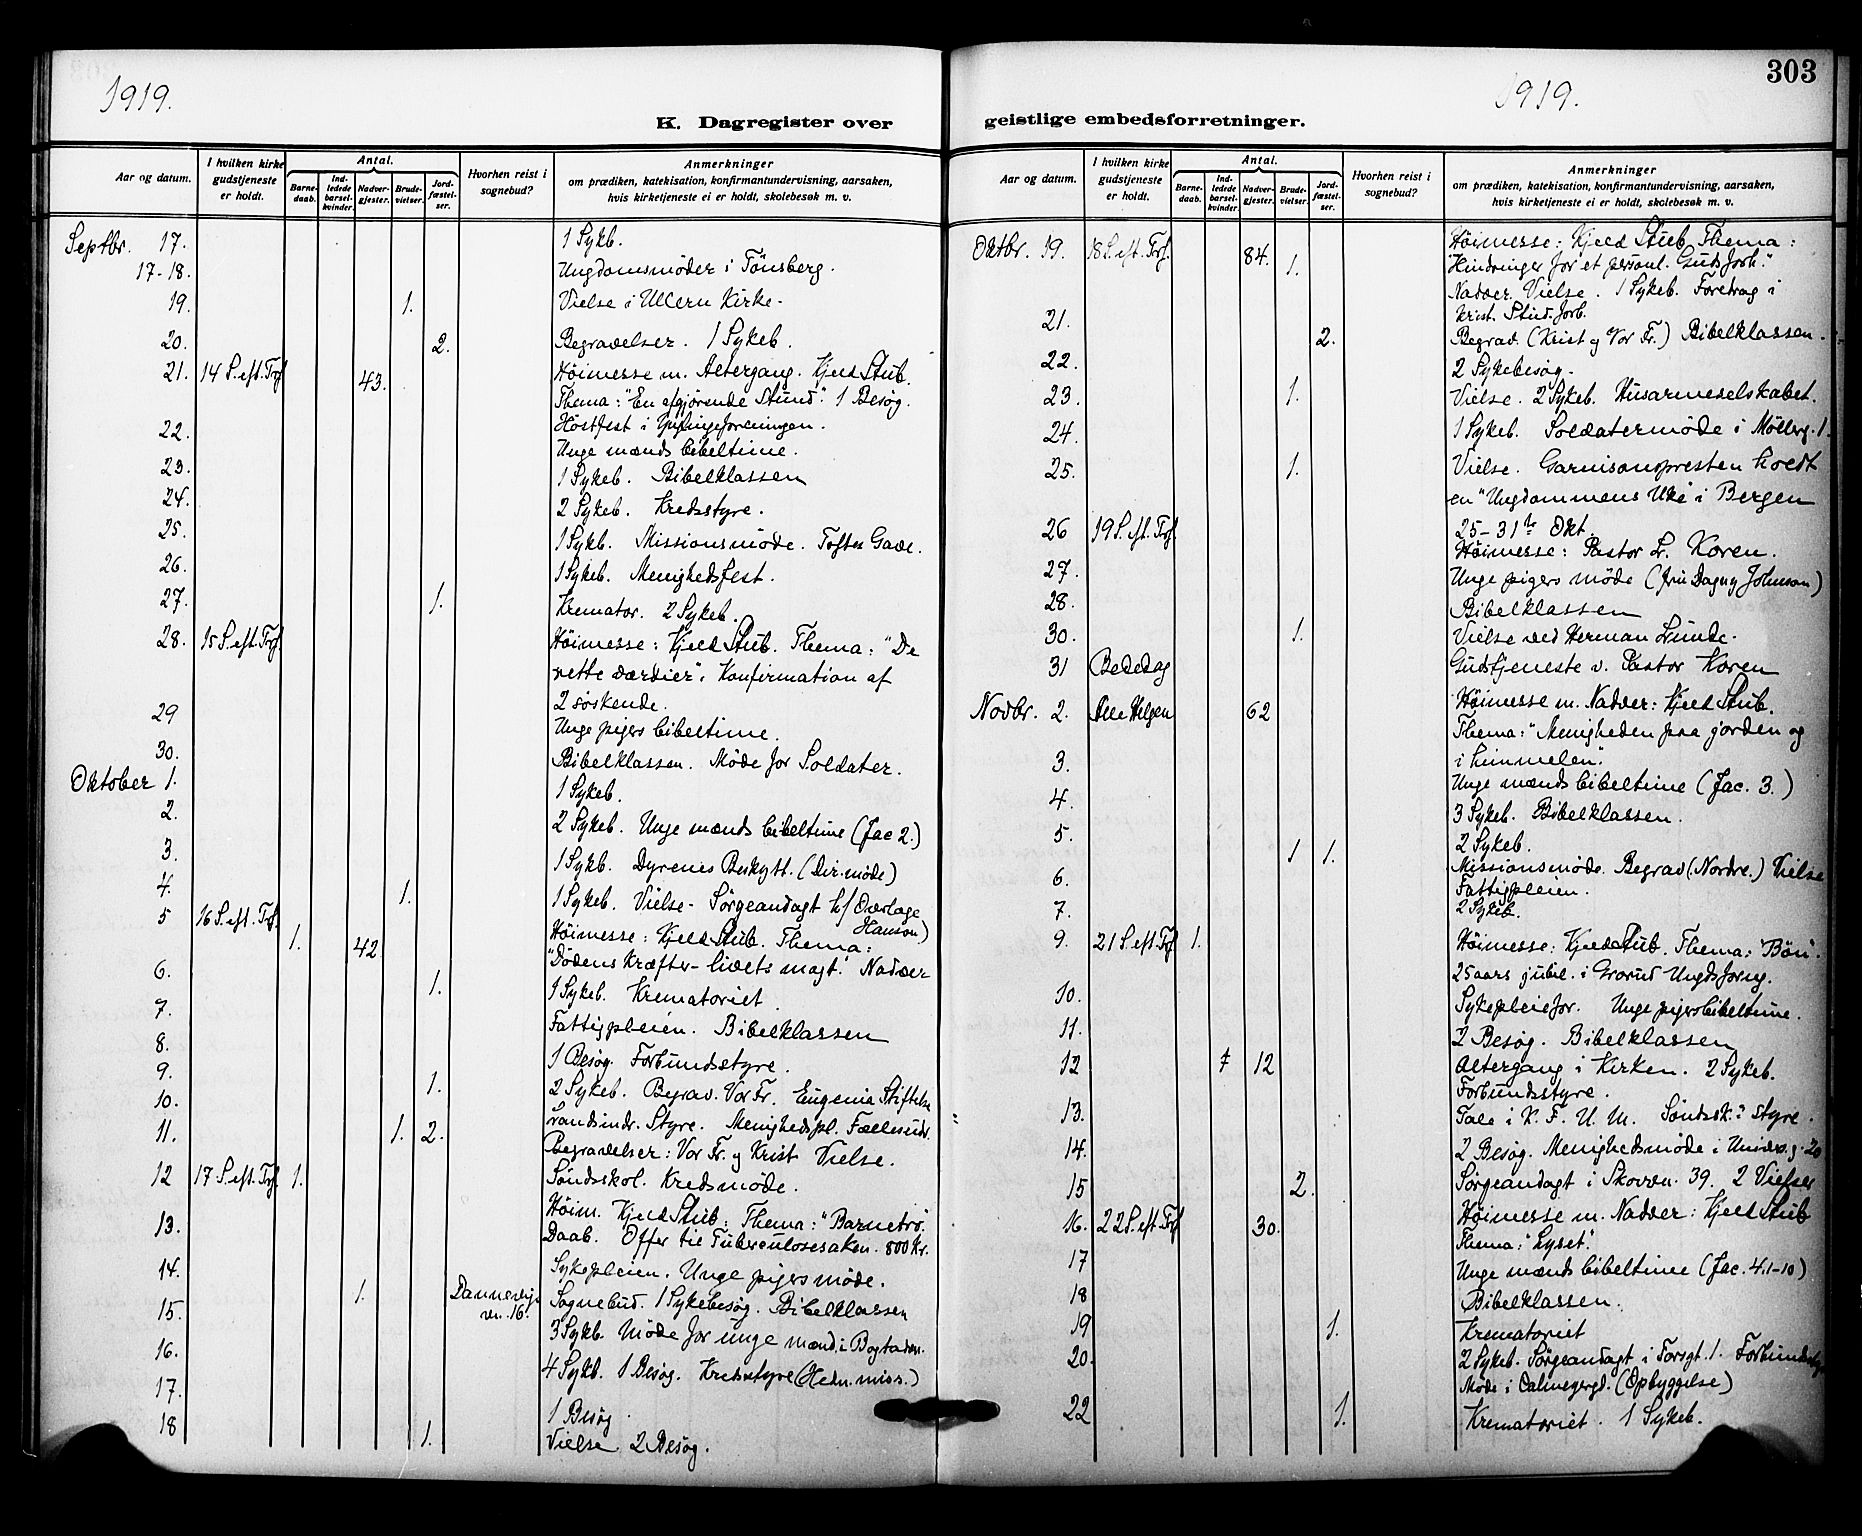 1919.
K. Dagregister over
Aar og datum.
I hvilken kirke gudstjeneste er holdt.
Antal.
Barnedaab.
Indledede barselkvinder.
Nadvergjester.
Brudevielser.
Jordfæstelser.
Hvorhen reist i sognebud?
Anmerkninger
om prædiken, katekisation, konfirmantundervisning, aarsaken,
hvis kirketjeneste ei er holdt, skolebesøk m. v.
Septbr. 17. 1 Sykb.
17-18. Ungdomsmøder i Tønsberg.
19. 1. Vielse i Ullern Kirke.
20. 2. Begravelser. 1 Sykeb.
21. 14 S. eft. Trf. 43. Høimesse m. Altergang. Kjeld Stub.
Thema: "En afgjørende Stund". 1 Besøg.
Høstfest i Ynglingeforeningen.
22. Unge mænds bibeltime.
23. 1 Sykeb. Bibelklassen
24. 2 Sykeb. Kredsstyre.
25. 1 Sykb. Missionsmøde. Toftes Gade.
26. 1 Sykeb. Menighedsfest.
27. 1. Kremator. 2 Sykeb.
28. 15 S. eft. Trf. Høimesse: Kjeld Stub. Thema: "De
rette værdier". Konfirmation af
2 søskende.
29 Unge pigers bibeltime.
30. Bibelklassen. Møde for Soldater.
Oktober 1. 1 Sykeb.
2. 2 Sykeb. Unge mænds bibeltime (Jac 2.)
3. 1 Sykb. Dyrenes Beskytt. (Dir. møde)
4. 1. 1 Sykeb. Vielse - Sørgeandagt h/ Overlæge
Hanson)
5 16 S. eft. Trf. 1. 42 Høimesse: Kjeld Stub. Thema:
"Dødens Kræfter - livets magt". Nadver
6. 1. 1 Sykeb. Krematoriet
7. Fattigpleien. Bibelklassen
8. 1 Besøg. Forbundsstyre.
9. 1. 2 Sykeb. Begrav. Vor Fr. Eugenia Stiftelse
10. Landsindr. Styre. Menighedspl. Fællesudv.
11. 1. 2. Begravelser: Vor Fr. og Krist Vielse.
Søndsskol. Kredsmøde.
12 17 S. eft. Trf. 1. Høim. Kjeld Stub: Thema: "Barnetro".
Daab. Offer til Tuberculosesaken. 800 Kr.
13. Sykepleien. Unge pigers møde.
14. 1. Dannevigsvn. 16. Sognebud. 1 Sykebesøg. Bibelklassen
15. 3 Sykb. Møde for unge mænd i Bogstadvn.
16. 4 Sykb. 1 Besøg. Kredsstyre (Hedn. miss.)
17. 1 Besøg
18 1. Vielse 2 Besøg.
1919.
303
geistlige embedsforretninger.
Aar og datum.
I hvilken kirke gudstjeneste er holdt.
Antal.
Barnedaab.
Indledede barselkvinder.
Nadvergjester.
Brudevielser.
Jordfæstelser.
Hvorhen reist i sognebud?
Anmerkninger
om prædiken, katekisation, konfirmantundervisning, aarsaken,
hvis kirketjeneste ei er holdt, skolebesøk m. v.
Oktbr. 19. 18 S. eft. Trf. 84. 1. Høimesse: Kjeld Stub Thema:
"Hindringer for et personl. Gudsforh."
Nadver. Vielse. 1 Sykeb. Foredrag i
Krist. Stud. forb.
21. 2. Begrav. (Krist og Vor Fr.) Bibelklassen.
22. 2 Sykebesøg.
23. 1. Vielse. 2 Sykeb. Husarmeselskabet.
24. 1 Sykeb. Soldatermøde i Møllerg. 1.
25. 1. Vielse. Garnisonspresten holdt
en "Ungdommens Uke" i Bergen
25-31te Okt.
26 19 S. eft. Trf. Høimesse: Pastor L. Koren.
27. Unge pigers møde (fru Dagny Johnson)
28. Bibelklassen
30. 1. Vielse ved Herman Lunde.
31 Bededag Gudstjeneste v. Pastor Koren
Novbr. 2. Alle Helgen 62 Høimesse m. Nadver: Kjeld Stub.
Thema: "Menigheden paa jorden og
i himmelen".
3. Unge mænds bibeltime (Jac. 3.)
4. 3 Sykeb. Bibelklassen.
5. 2 Sykeb.
1 1. Missionsmøde. Begrav (Nordre.) Vielse
6. Fattigpleien.
7. 2 Sykeb.
9. 21 S. eft. Trf 1. Høimesse: Kjeld Stub. Thema: "Bøn".
25 aars jubil. i Grorud Ungdsforng.
10. Sykepleiefor. Unge pigers bibeltime.
11. 2 Besøg. Bibelklassen
12 12 Altergang i Kirken. 2 Sykeb.
Forbundsstyre.
13. Tale i K. F. U. M. Søndssk. styre.
14. 2 Besøg. Menighedsmøde i Univers. g. 20
15 2. Sørgeandagt i Skovvn. 39. 2 Vielser
16. 22 S. eft. Trf 30. Høimesse m. Nadver: Kjeld Stub
Thema: "Lyset".
17 Unge mænds bibeltime (Jac. 4. 1-10)
18 Bibelklassen.
19 1. Krematoriet
20. 2 Sykeb. Sørgeandagt i 1. Forbundsstyre
Møde i Calmeyergd. (Opbyggelse)
22 1. Krematoriet. 1 Sykeb.